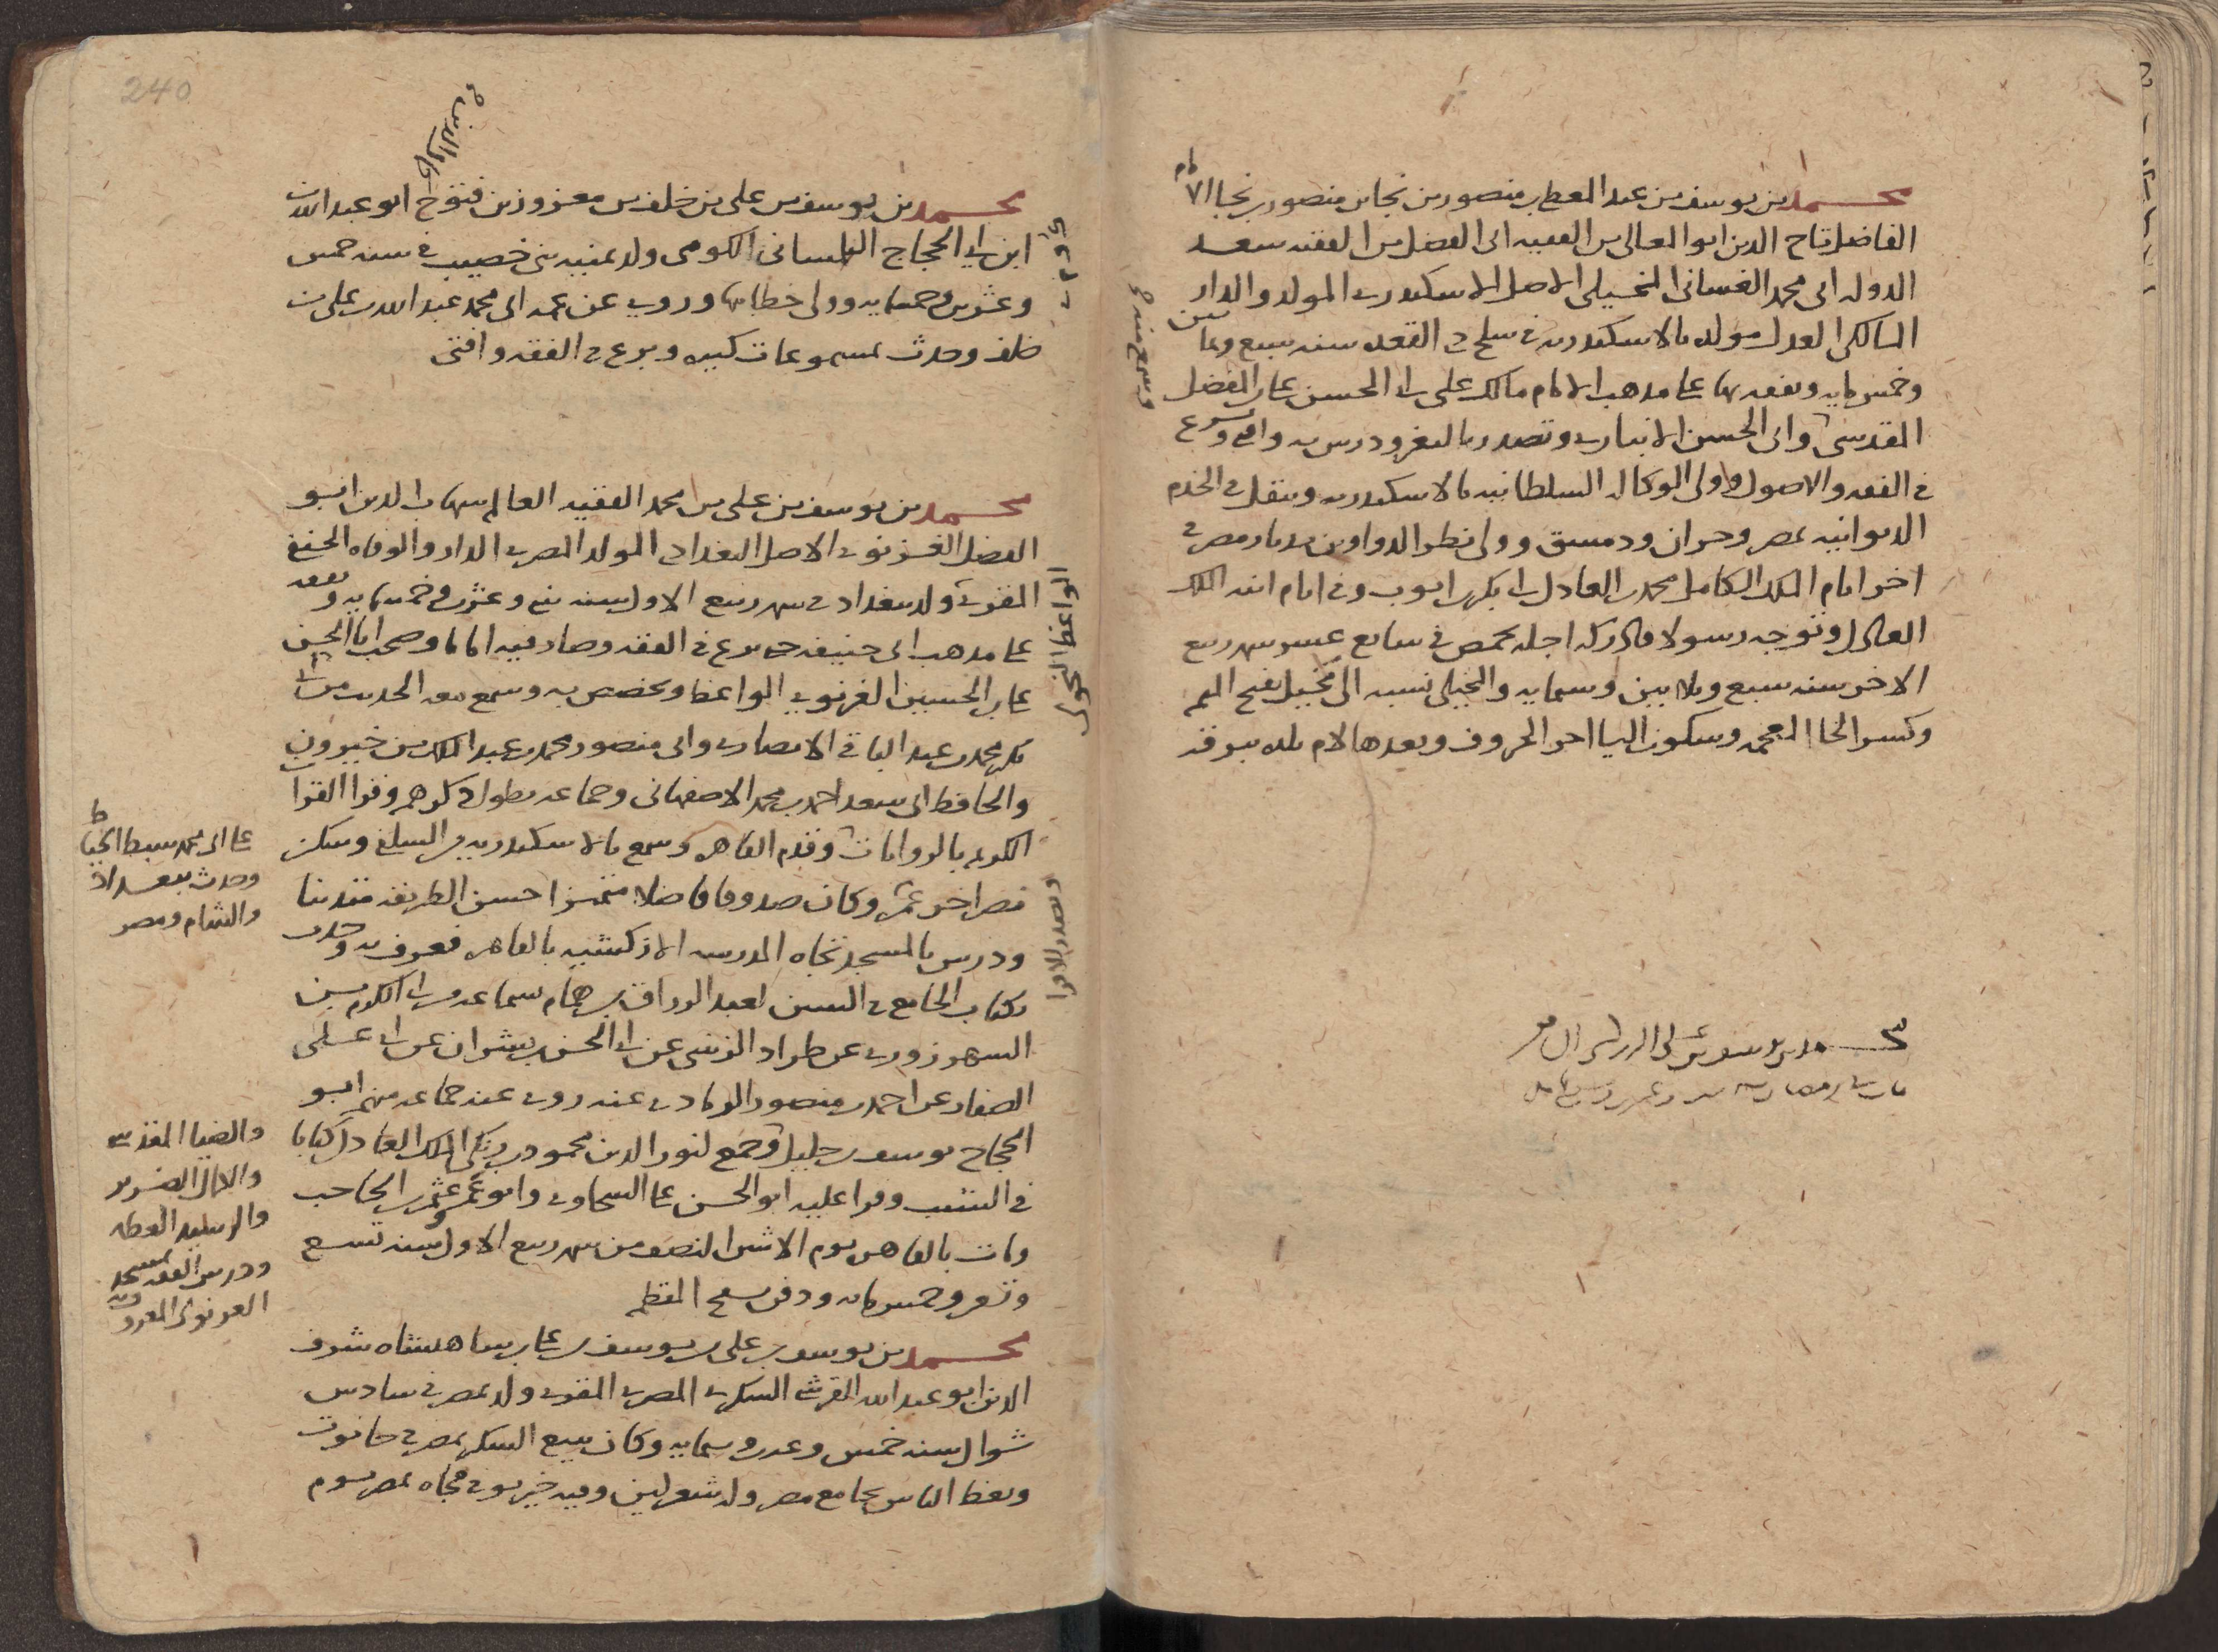 محمد بن يوسف بن عبد المعطي بن منصور بن نجا بن منصور بن نجا الامام
الفاضل تاج الدين ابو المعالي بن الفقيه ابي الفضل بن الفقيه سعد
الدوله ابي محمد الغساني المخيلي الاصل الاسكندري المولد والدار
المالكي العدل مولده بالاسكندريه في سلخ ذي القعده سنه سبع وثمانين
وخمس مايه وتفقه بها على مذهب الامام مالك على ابي الحسن علي بن المفضل
المقدسي وابي الحسن الانباري وتصدر بالثغر ودرس به وافتى وبرع
في الفقه والاصول وولي الوكاله السلطانيه بالاسكندريه وتنقل في الخدم
الديوانيه بمصر وحران ودمشق وولي نظر الدواوين بديار مصر في
اخر ايام الملك الكامل محمد بن العادل ابي بكر بن ايوب وفي ايام ابنه الملك
العادل وتوجه رسولا فادركه اجله بحمص في سابع عشر شهر ربيع
الاخر سنه سبع وثلاثين وستمايه والمخيلي نسبه الى مخيل بفتح الميم
وكسر الخا المعجمه وسكون اليا اخر الحروف وبعدها لام بلده ببرقه
وسمع منه
محمد بن يوسف بن علي
240
كمال الدين
محمد بن يوسف بن علي بن خلف بن معزوز بن فتوح ابو عبد الله
ابن ابي الحجاج التلمساني الكومي ولد بمنيه بني خصيب في سنه خمس
وعشرين وخمسمايه وولي خطابتها وروى عن عمه ابي محمد عبد الله بن علي بن
خلف وحدث بمسموعات كثيره وبرع في الفقه وافتى
محمد بن يوسف بن علي بن محمد الفقيه العالم شهاب الدين ابو
الفضل الغزنوي الاصل البغدادي المولد المصري الدار والوفاه الحنفي
المقري ولد ببغداد في شهر ربيع الاول سنه اثنين وعشرين وخمسمايه وتفقه
على مذهب ابي حنيفه حتى برع في الفقه وصار فيه اماما وصحب ابا الحسن
علي بن الحسين الغزنوي الواعظ وتخصص به وسمع معه الحديث من ابي
بكر محمد بن عبد الباقي الانصاري وابي منصور محمد بن عبد الملك بن خيرون
والحافظ ابي سعد احمد بن محمد الاصفهاني وجماعه يطول ذكرهم وقرا القران
الكريم بالروايات وقدم القاهره وسمع بالاسكندريه من السلفي وسكن
مصر اخر عمره وكان صدوقا فاضلا متميزا حسن الطريقه متدينا
ودرس بالمسجد تجاه المدرسه الازكشيه بالقاهره فعرف به وحدث
بكتاب الجامع في السنن لعبد الرزاق بن همام بسماعه من ابي الكرم بن
الشهرزوري عن طراد الزينبي عن ابي الحسين بن بشران عن ابي علي
الصفار عن احمد بن منصور الرمادي عنه روى عنه جماعه منهم ابو
الحجاج يوسف بن خليل وجمع لنور الدين محمود بن زنكي الملك العادل كتابا
في الشيب وقرا عليه ابو الحسن علي السخاوي وابو عمرو عثمن بن الحاجب
ومات بالقاهره يوم الاثنين النصف من شهر ربيع الاول سنه تسع
وتسعين وخمس مايه ودفن بسفح المقطم
محمد بن يوسف بن علي بن يوسف بن علي بن شاهنشاه شرف
الدين ابو عبد الله القرشي السكري المصري المقري ولد بمصر في سادس
شوال سنه خمس وعشرين وستمايه وكان يبيع السكر بمصر في حانوت
ويعظ الناس بجامع مصر وله شعر لين وفيه خير توفي فجاه بمصر يوم
الواعظ النحوي
وتصدر للاقرا
على ابي محمد سبط الخياط
وحدث ببغداد
والشام ومصر
والضيا المقدسي
والكمال الضرير
والرشيد العطار
ودرس الفقه بمسجد
الغزنوي المعروف به